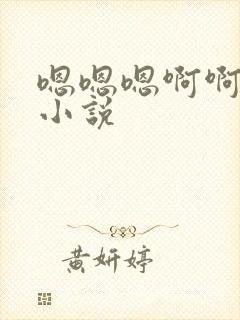 嗯嗯嗯啊啊
小说
黄妍婷